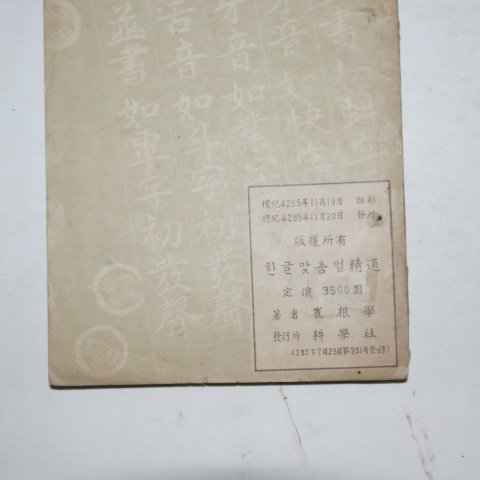 書
牙音如快字
牙音如業字
舌音如斗字
並書如覃字初發聲
檀紀4285年11月10日 印刷
檀紀4285年11月20日 發行
版權所有
한글맞춤법精通
定價 3500圓
著者 崔根學
發行所 科學社
(4285年7月23日第351号登錄)